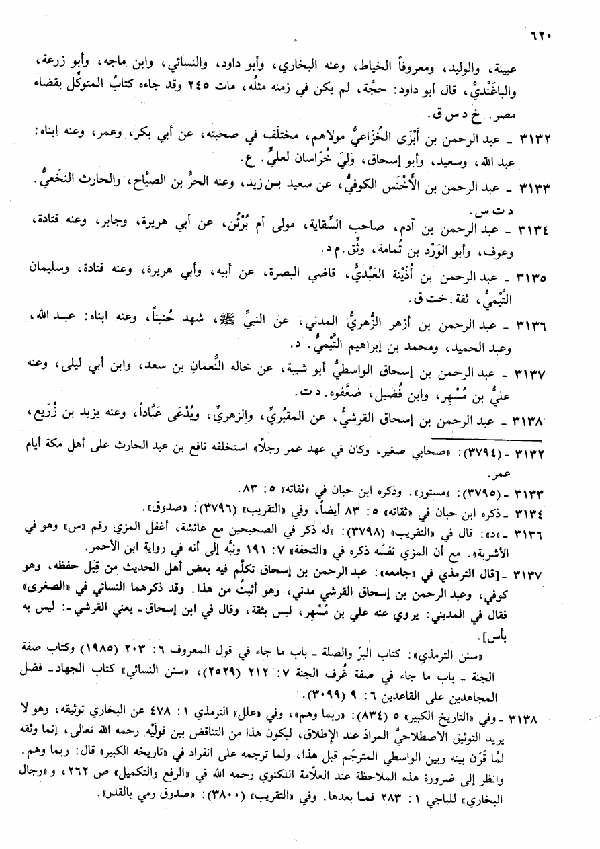 ٦٢٠
عيينة، والوليد، ومعروفاً الخياط، وعنه البخاري، وأبو داود، والنسائي، وابن ماجه، وأبو زرعة،
والباغَنْديُّ، قال أبو داود: حجّة، لم يكن في زمنه مثلُه، مات ٢٤٥ وقد جاءه كتابُ المتوكِّل بقضاء
مصر. خ د س ق.
٣١٣٢ ـ عبد الرحمن بن أَبْزَى الخُزَاعيُّ مولاهم، مختلَف في صحبته، عن أبي بكر، وعمر، وعنه إبناه:
عبد الله، وسعيد، وأبو إسحاق، وَلِيَ خُرَاسان لعليٍّ. ع.
٣١٣٣ ـ عبد الرحمن بن الأَخْنَس الكوفيُّ، عن سعيد بن زيد، وعنه الحرُّ بن الصيَّاح، والحارث النخَعيُّ.
د ت س.
٣١٣٤ ـ عبد الرحمن بن آدم، صاحب السِّقاية، مولى أم بُرْثُن، عن أبي هريرة، وجابر، وعنه قتادة،
وعوف، وأبو الوَرْد بن ثُمامة، وثِّق. م د.
٣١٣٥ ـ عبد الرحمن بن أُذَيْنة العَبْديُّ، قاضي البصرة، عن أبيه، وأبي هريرة، وعنه قتادة، وسليمان
التَّيْميُّ، ثقة. خت ق.
٣١٣٦ ـ عبد الرحمن بن أزهر الزُّهْريُّ المدني، عن النبيِّ ﷺ، شهد حُنيناً، وعنه ابناه: عبد الله،
وعبد الحميد، ومحمد بن إبراهيم التَّيْميُّ. د.
٣١٣٧ ـ عبد الرحمن بن إسحاق الواسطيُّ أبو شيبة، عن خاله النُّعمان بن سعد، وابن أبي ليلى، وعنه
عليُّ بن مُسْهِر، وابن فُضيل، ضعَّفوه. د ت.
٣١٣٨ ـ عبد الرحمن بن إسحاق القرشيُّ، عن المقبُريِّ، والزهريِّ، ويُدْعَى عَبَّاداً، وعنه يزيد بن زُرَيع،
٣١٣٢ ـ (٣٧٩٤): «صحابي صغير، وكان في عهد عمر رجلاً» استخلفه نافع بن عبد الحارث على أهل مكة أيام
عمر.
٣١٣٣ ـ (٣٧٩٥): «مستور». وذكره ابن حبان في «ثقاته» ٥: ٨٣.
٣١٣٤ ـ ذكره ابن حبان في «ثقاته» ٥: ٨٣ أيضاً، وفي «التقريب» (٣٧٩٦): «صدوق».
٣١٣٦ ـ «د»: قال في «التقريب» (٣٧٩٨): «له ذكر في الصحيحين مع عائشة، أغفل المزي رقم «س» وهو في
الأشربة». مع أن المزي نفسَه ذكره في «التحفة» ٧: ١٩١ ونبَّه إلى أنه في رواية ابن الأحمر.
٣١٣٧ ـ [قال الترمذي في «جامعه»: عبد الرحمن بن إسحاق تكلَّم فيه بعض أهل الحديث من قِبَل حفظه، وهو
كوفي، وعبد الرحمن بن إسحاق القرشي مدني، وهو أثبتُ من هذا. وقد ذكرهما النسائي في «الصغرى»
فقال في المديني: يروي عنه علي بن مُسْهِر، ليس بثقة، وقال في ابن إسحاق ـ يعني القرشي ـ: ليس به
بأس].
«سنن الترمذي»: كتاب البرّ والصلة ـ باب ما جاء في قول المعروف ٦: ٢٠٣ (١٩٨٥) وكتاب صفة
الجنة ـ باب ما جاء في صفة غُرف الجنة ٧: ٢١٢ (٢٥٢٩)، «سنن النسائي» كتاب الجهاد ـ فضل
المجاهدين على القاعدين ٦: ٩ (٣٠٩٩).
٣١٣٨ ـ وفي «التاريخ الكبير» ٥ (٨٣٤): «ربما وهم»، وفي «علل» الترمذي ١: ٤٧٨ عن البخاري توثيقه، وهو لا
يريد التوثيق الاصطلاحيَّ المرادَ عند الإطلاق، ليكون هذا من التناقض بين قولَيْه رحمه الله تعالى، إنما وثقه
لمَّا قَرَن بينه وبين الواسطي المترجَم قبل هذا، ولما ترجمه على انفراد في «تاريخه الكبير» قال: ربما وهم.
وانظر إلى ضرورة هذه الملاحظة عند العلّامة اللكنوي رحمه الله في «الرفع والتكميل» ص ٢٦٢، و «رجال
البخاري» للباجي ١: ٢٨٣ فما بعدها. وفي «التقريب» (٣٨٠٠): «صدوق رمي بالقدر».